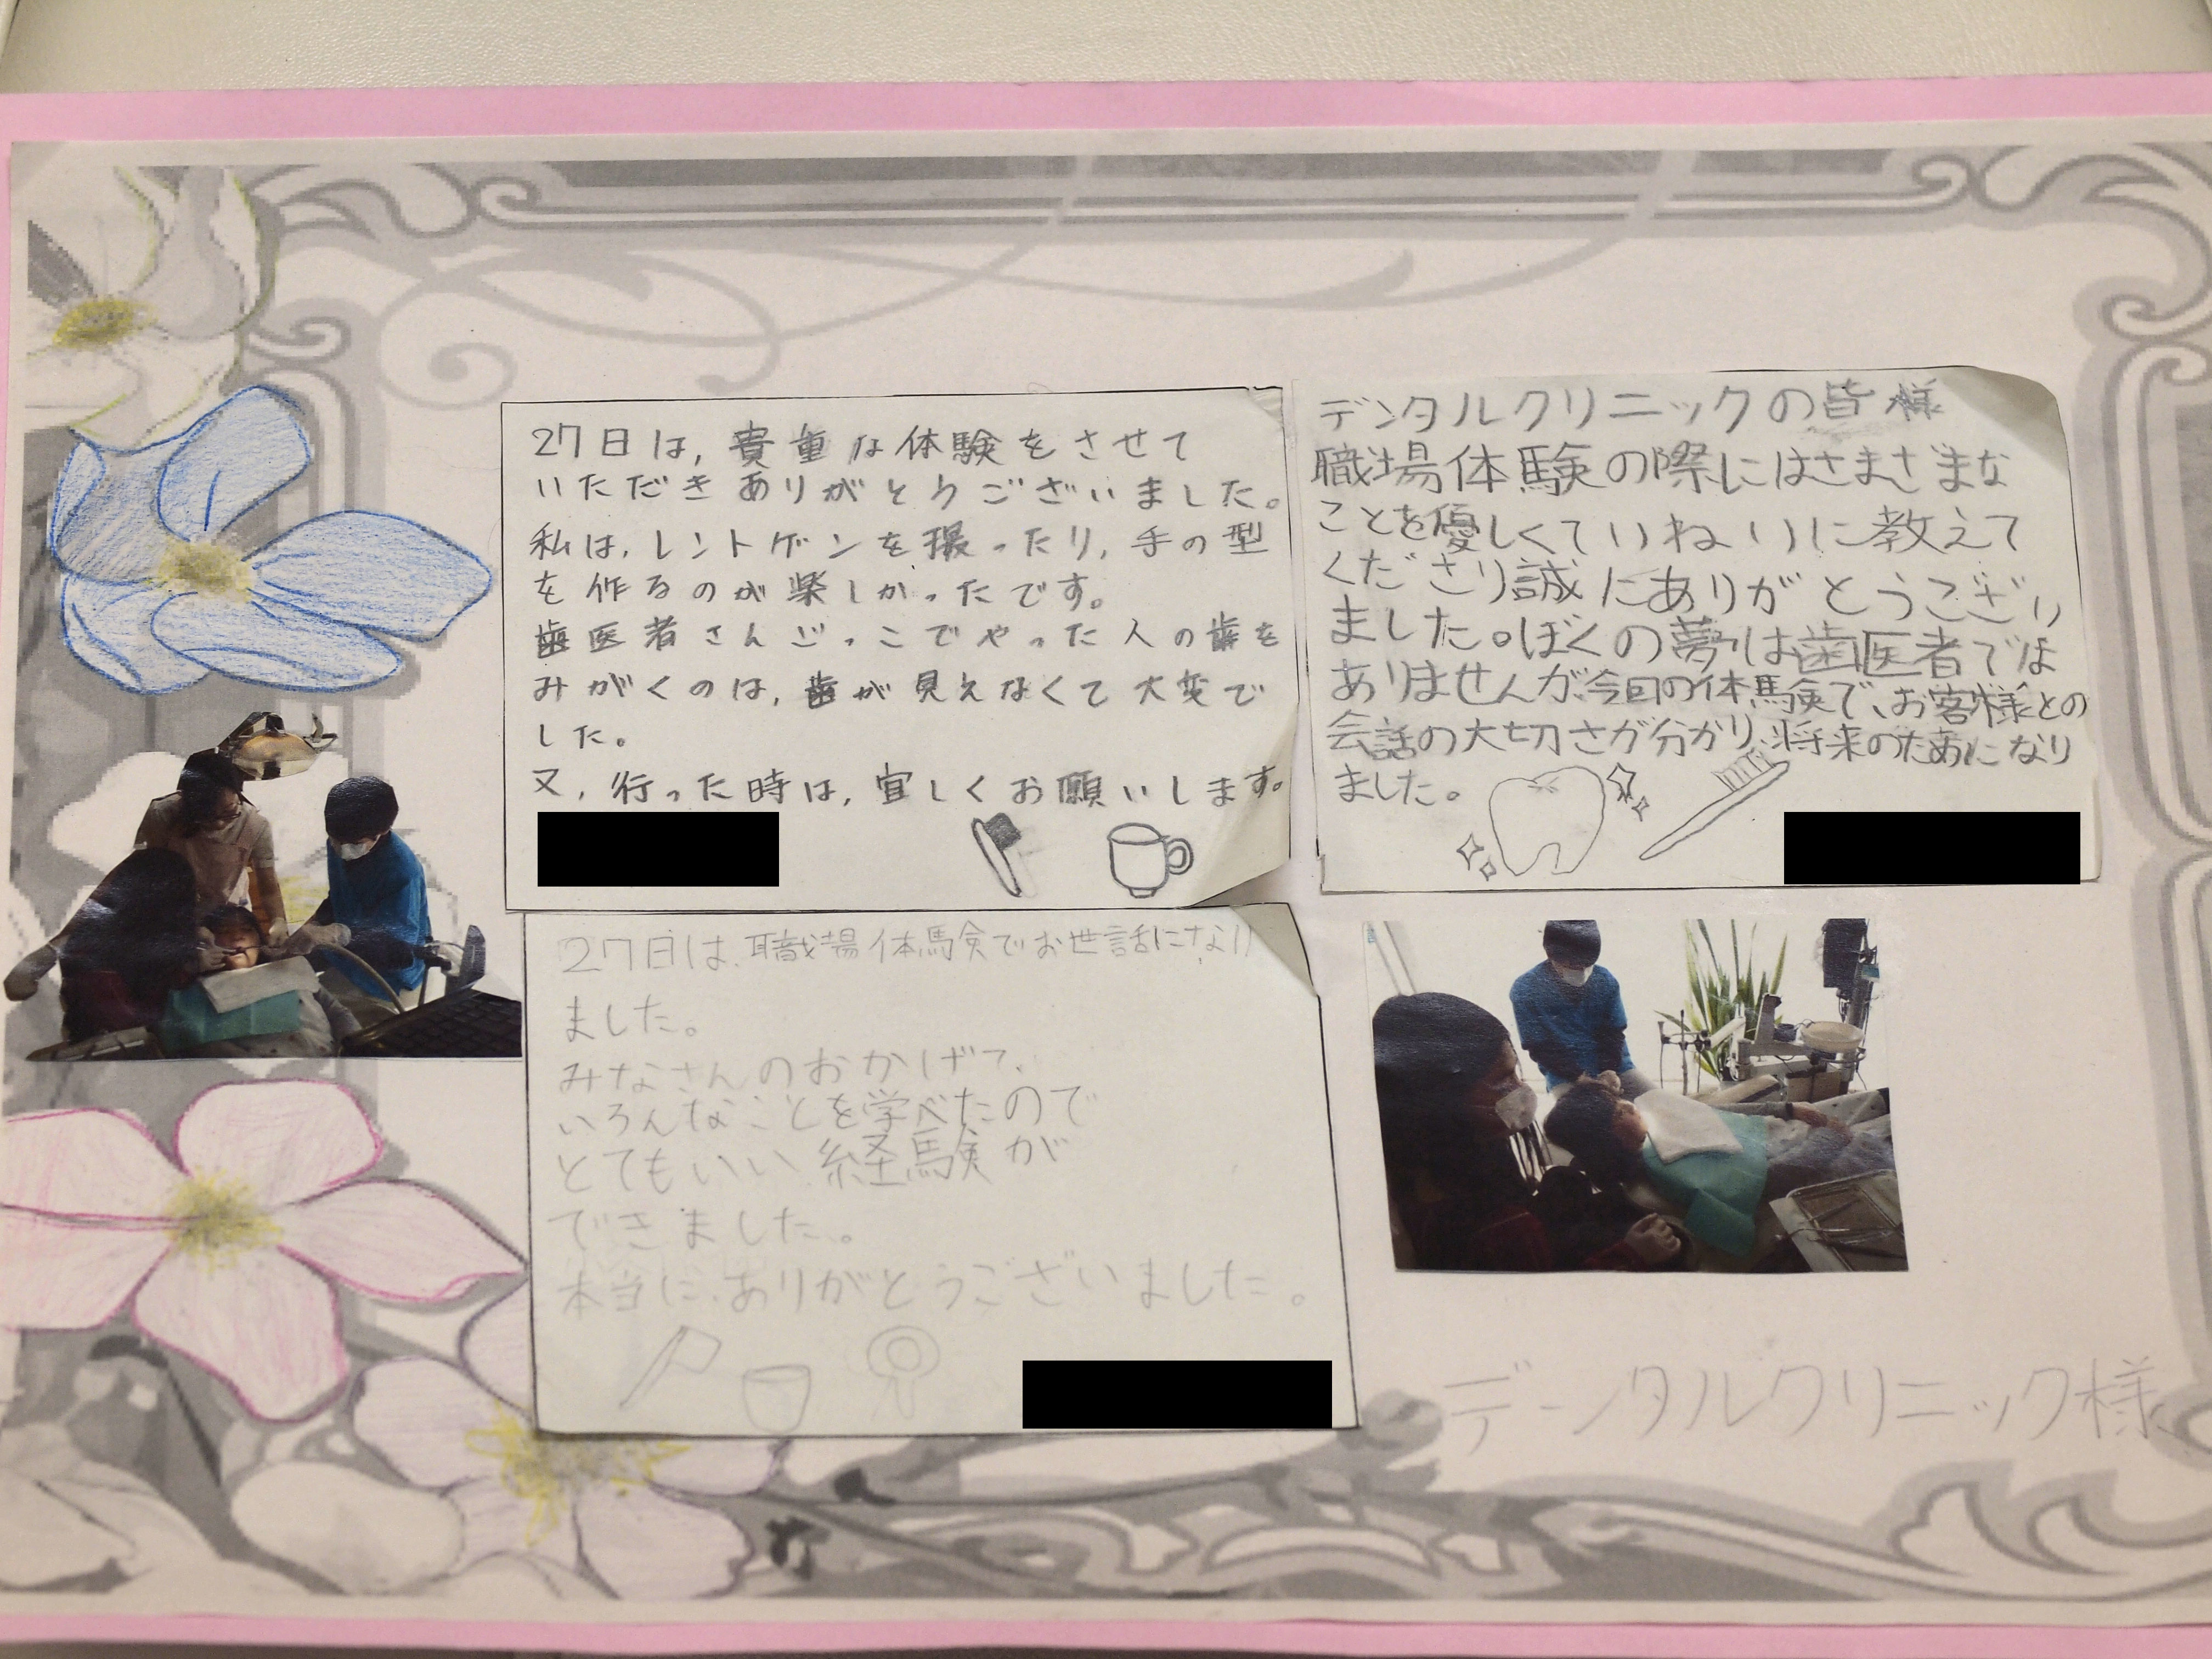 27日は,貴重な体験をさせて
いただきありがとうございました。
私は,レントゲンを撮ったり,手の型
を作るのが楽しかったです。
歯医者さんごっこでやった人の歯を
みがくのは,歯が見えなくて大変で
した。
又,行った時は,宜しくお願いします。
デンタルクリニックの皆様
職場体験の際にはさまざまな
ことを優しくていねいに教えて
くださり誠にありがとうござい
ました。ぼくの夢は歯医者では
ありませんが、今回の体験で、お客様との
会話の大切さが分かり、将来のためになり
ました。
27日は、職場体験でお世話になり
ました。
みなさんのおかげで、
いろんなことを学べたので
とてもいい経験が
できました。
本当に、ありがとうございました。
デンタルクリニック様